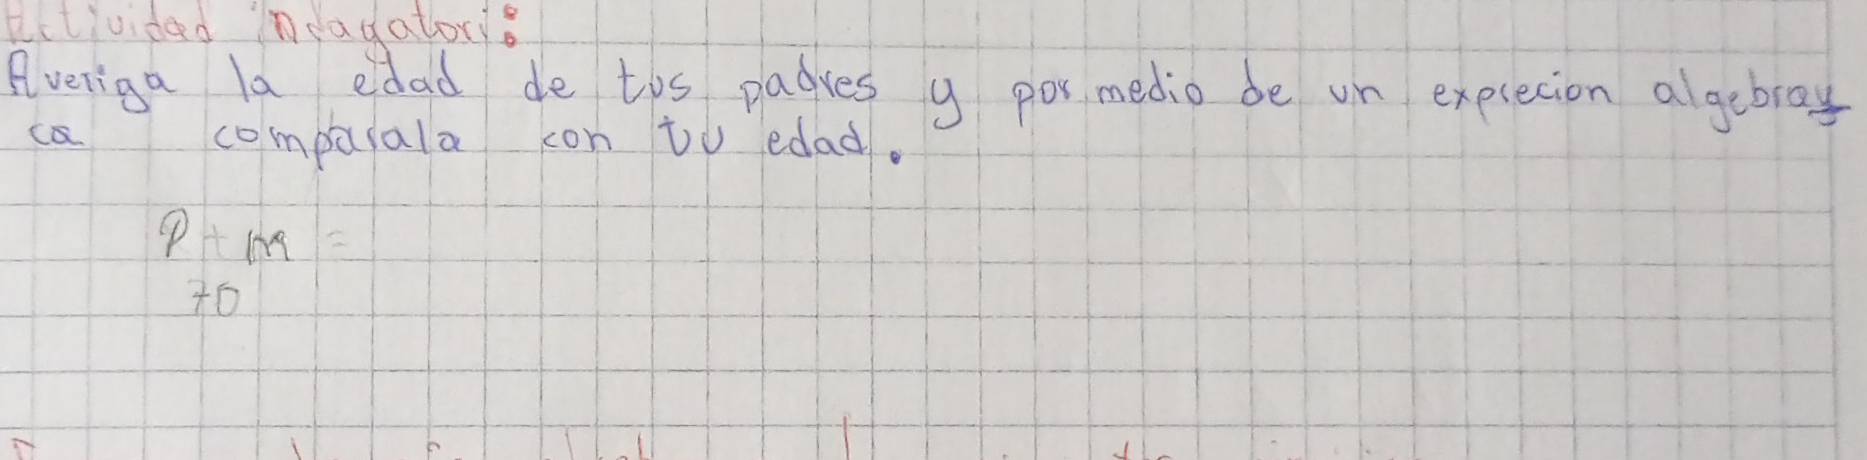 Actividad indagatori:
Averiga la edad de tus padres y por medio de un exprecion algebray
ca comparala con tu edad.
P + m =
70